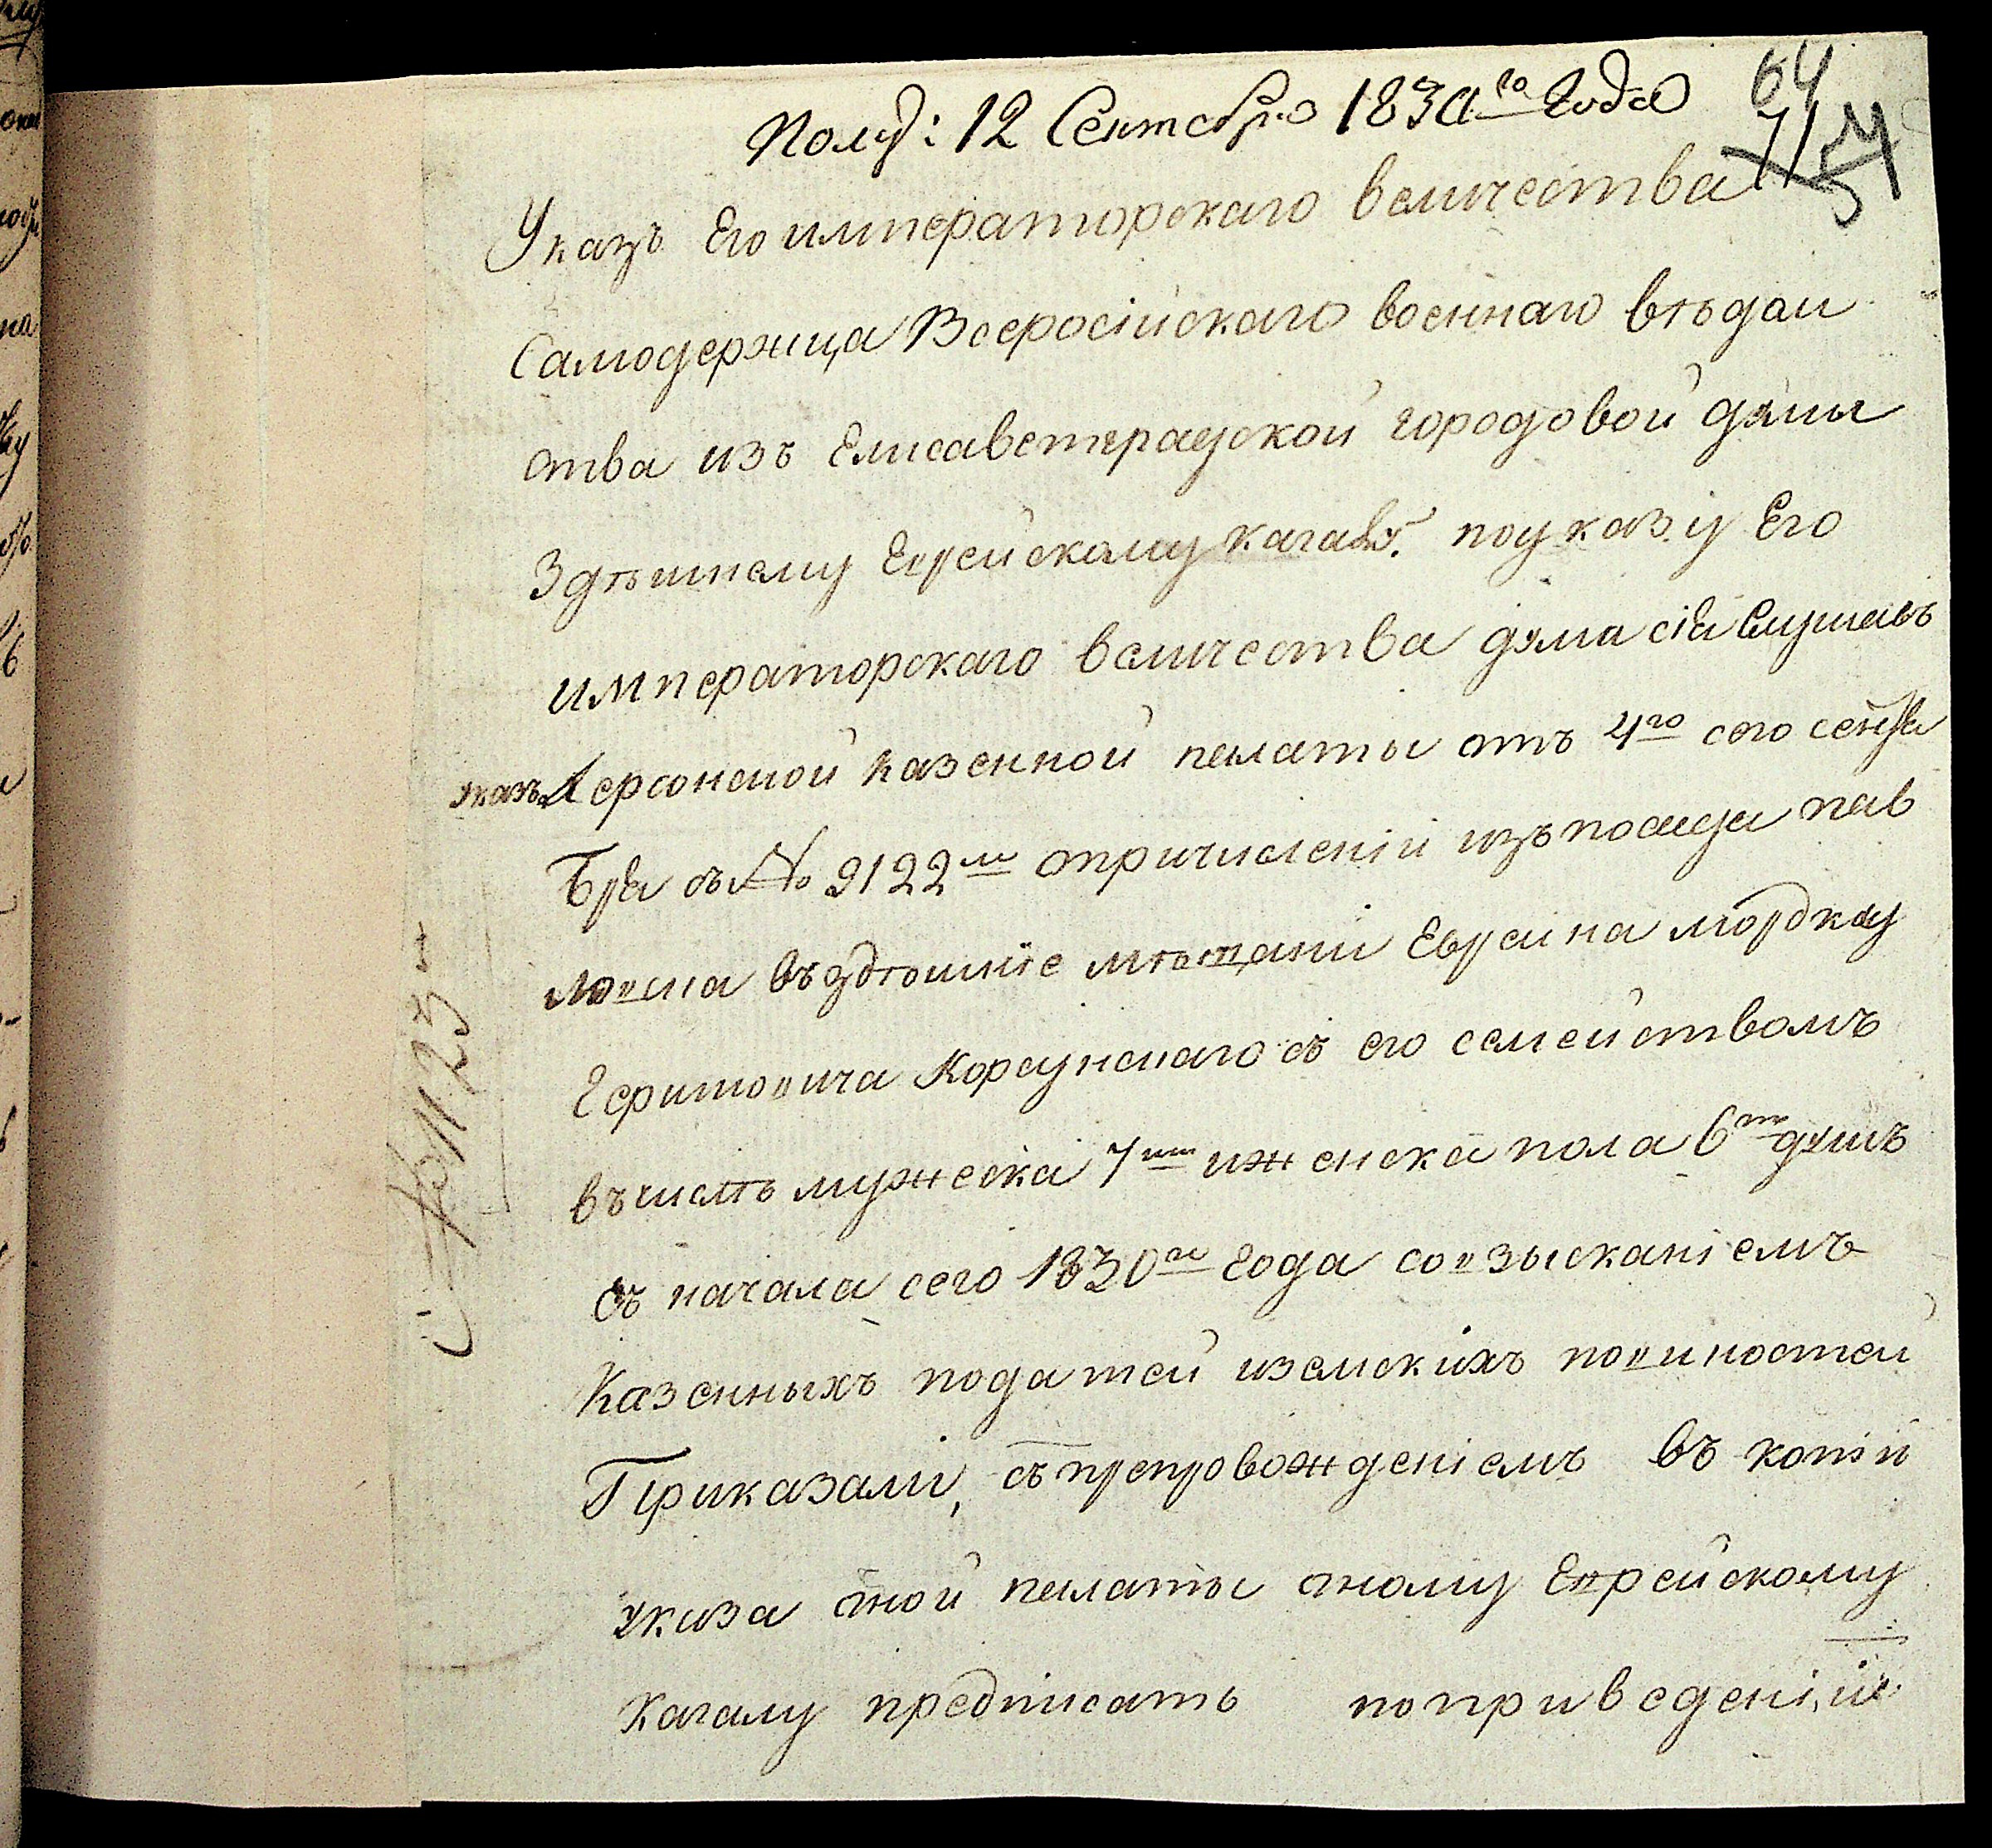 Получ: 12 Сентября 1830го Года
64
71
Указъ Его императорскаго величества
Самодержца Всеросійскаго военнаго вѣдом
ства изъ Елисаветградской городовой думы
Здѣшнему Еврейскому кагалу. по указу Его
императорскаго величества дума сія Слушавъ
указъ Херсонской казенной палаты отъ 4го сего сентя
бря съ № 9122м опричисленіи изъ посада пав
ловска въ здѣшніе мѣщани Евреина мордку
Гершковича Корсунскаго съ его семействомъ
въ числѣ мужеска 7ми и женска пола 6ти душъ
съ начала сего 1830го Года со взысканіемъ
Казенныхъ податей и земскихъ повиностей
Приказали, съ препровожденіемъ въ копіи
указа оной палаты оному Еврейскому
Кагалу предписать по приведеніи